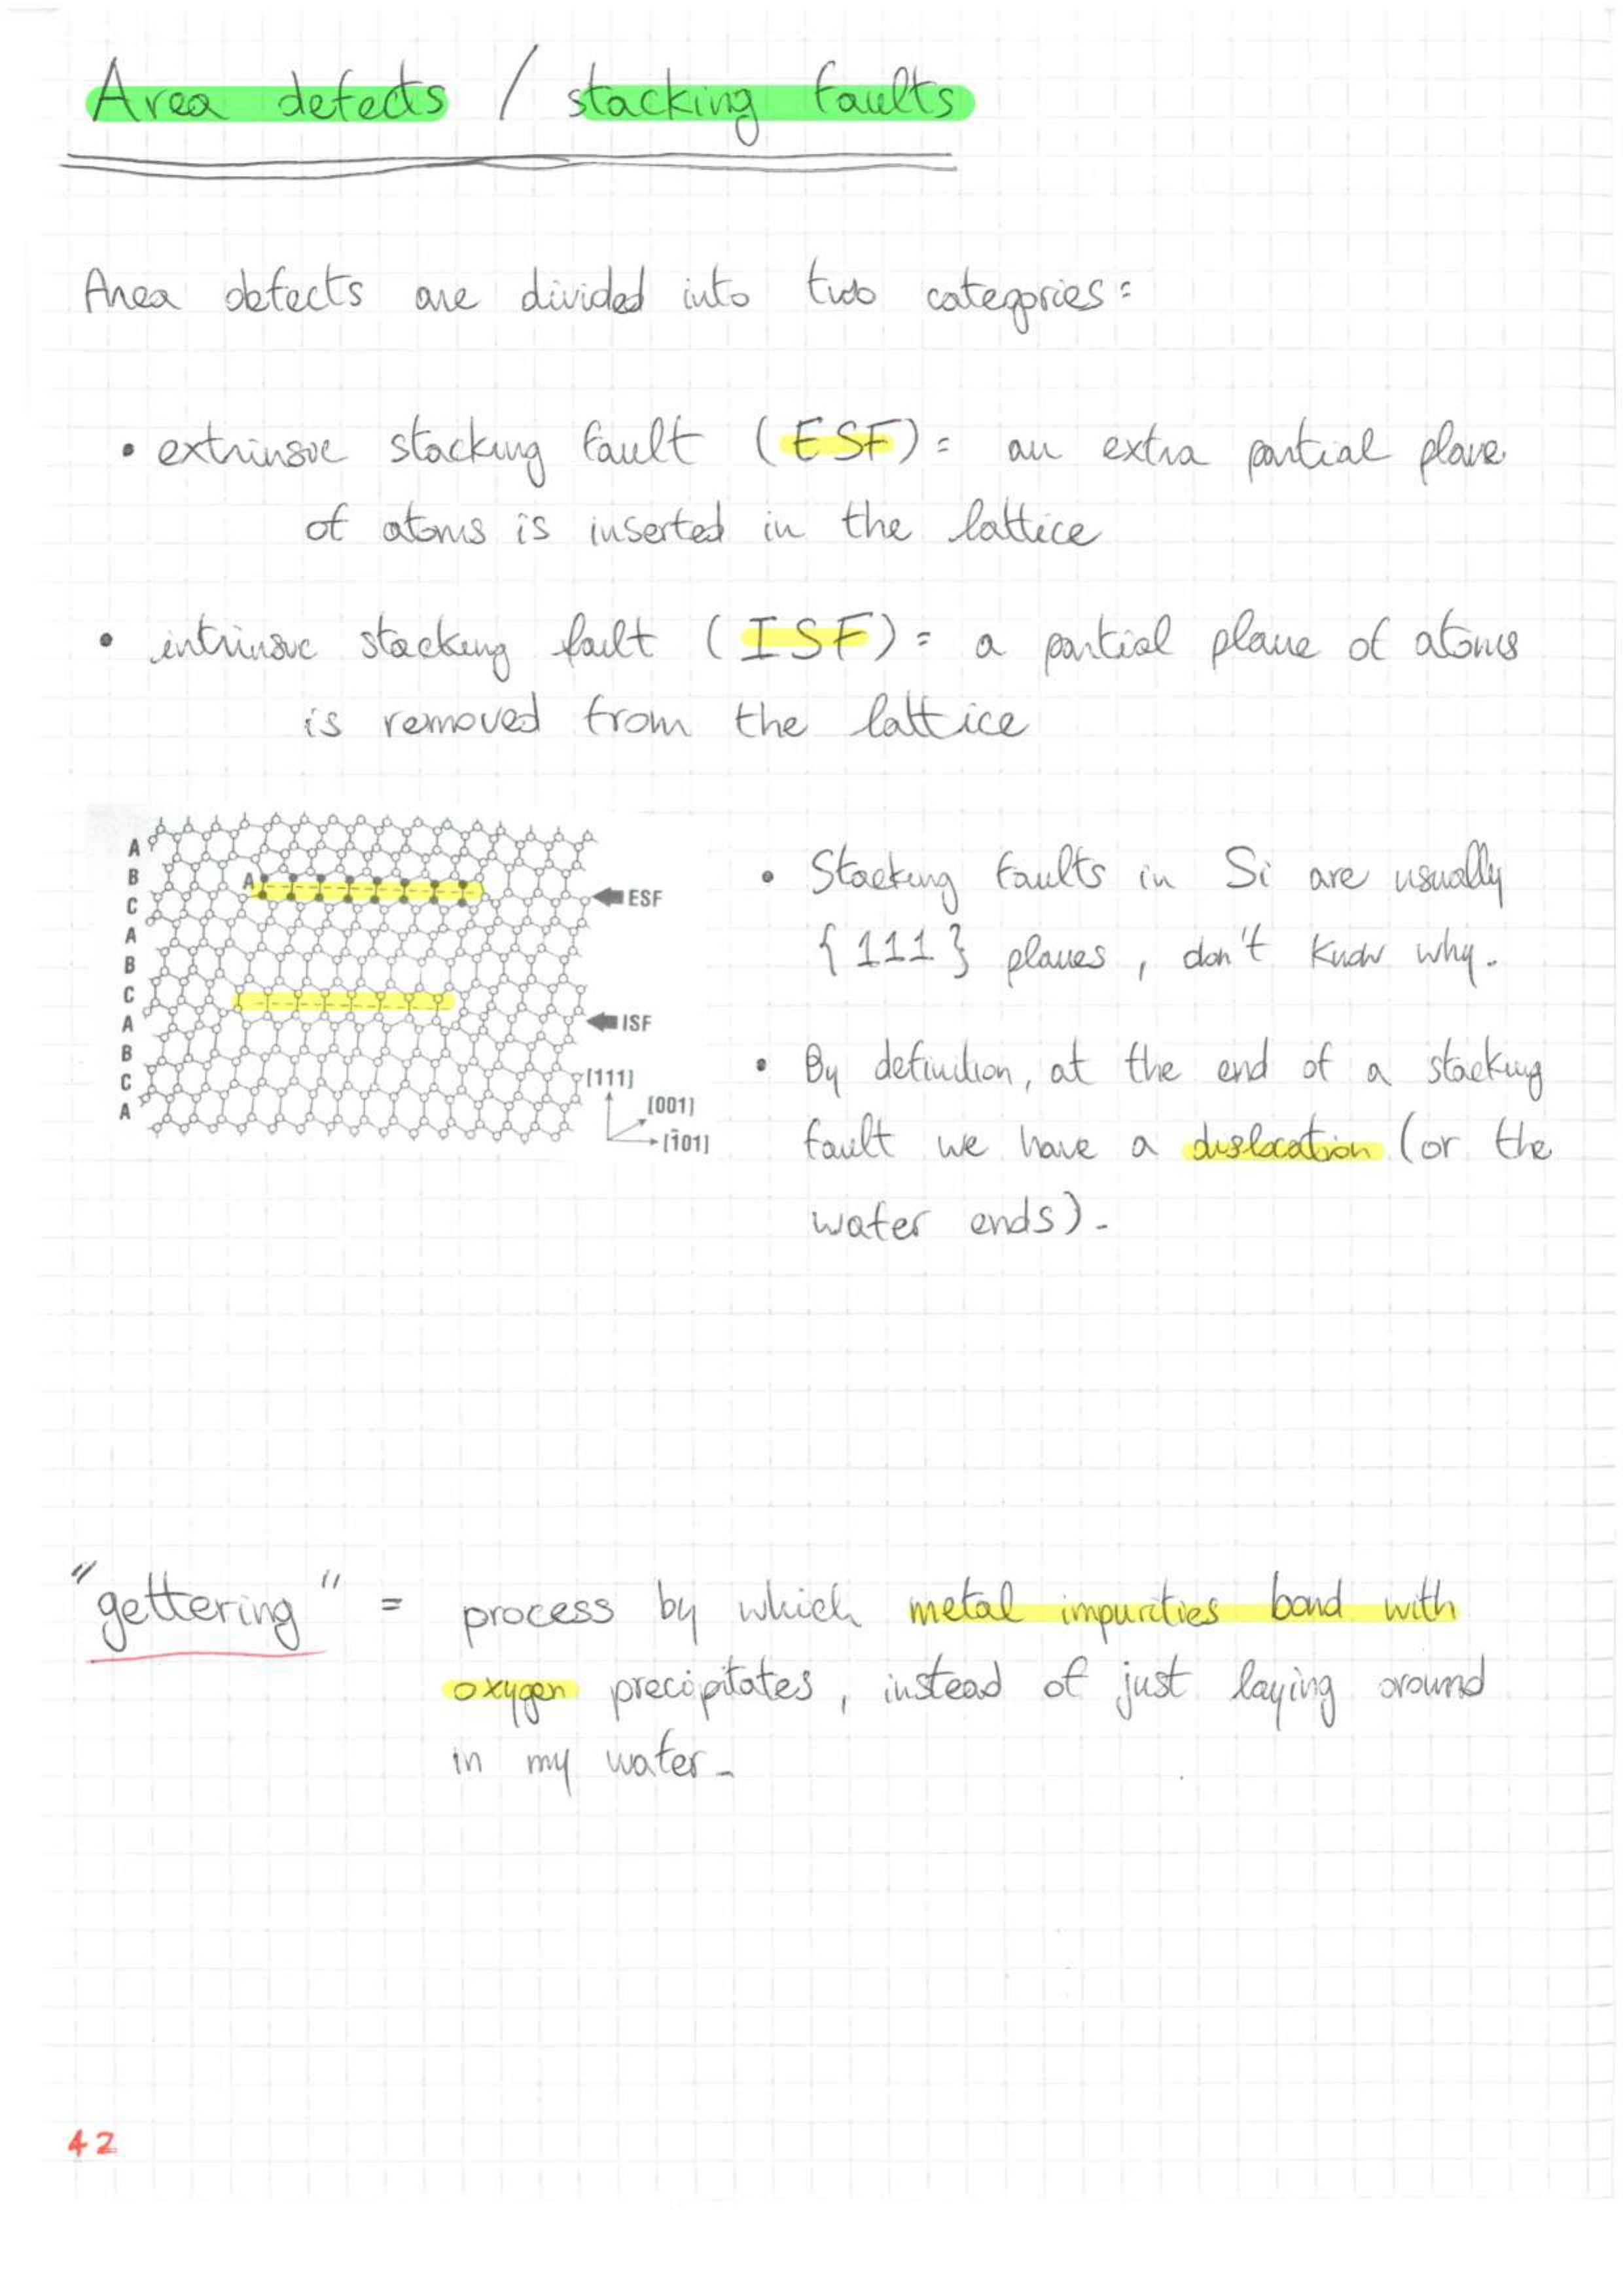 Area defects / stacking faults
Area defects are divided into two categories:
• extrinsic stacking fault (ESF) = an extra partial plane
of atoms is inserted in the lattice
• intrinsic stacking fault (ISF) = a partial plane of atoms
is removed from the lattice
A
B
C
A
B
C
A
B
C
A
A
ESF
ISF
[111]
[001]
[1̄01]
• Stacking faults in Si are usually
{111} planes, don't know why.
• By definition, at the end of a stacking
fault we have a dislocation (or the
wafer ends).
"gettering" = process by which metal impurities bond with
oxygen precipitates, instead of just laying around
in my wafer.
42